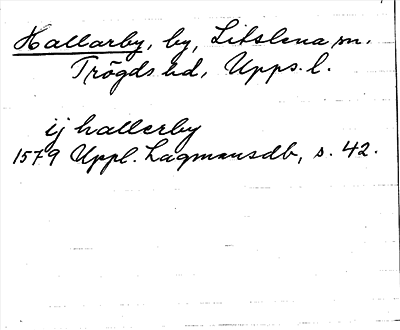 Hallarby, by, Litslena sn.
Trögds hd, Upps. l.
ij hallerby
1579 Uppl. Lagmansdb, s. 42.